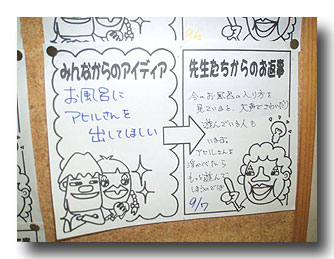 みんなからのアイディア
お風呂に
アヒルさんを
出してほしい
先生たちからのお返事
今のお風呂の入り方を
見ていると、大声でさわいだり
遊んでいる人も
います。
アヒルさんを
浮かべたら
もっと遊んで
しまうのでは
9/17